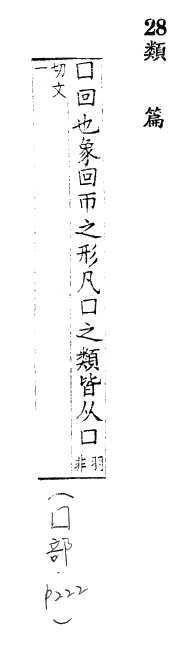 28類 篇
囗回也象回帀之形凡囗之類皆从囗羽非
切文一
(囗部.p222)